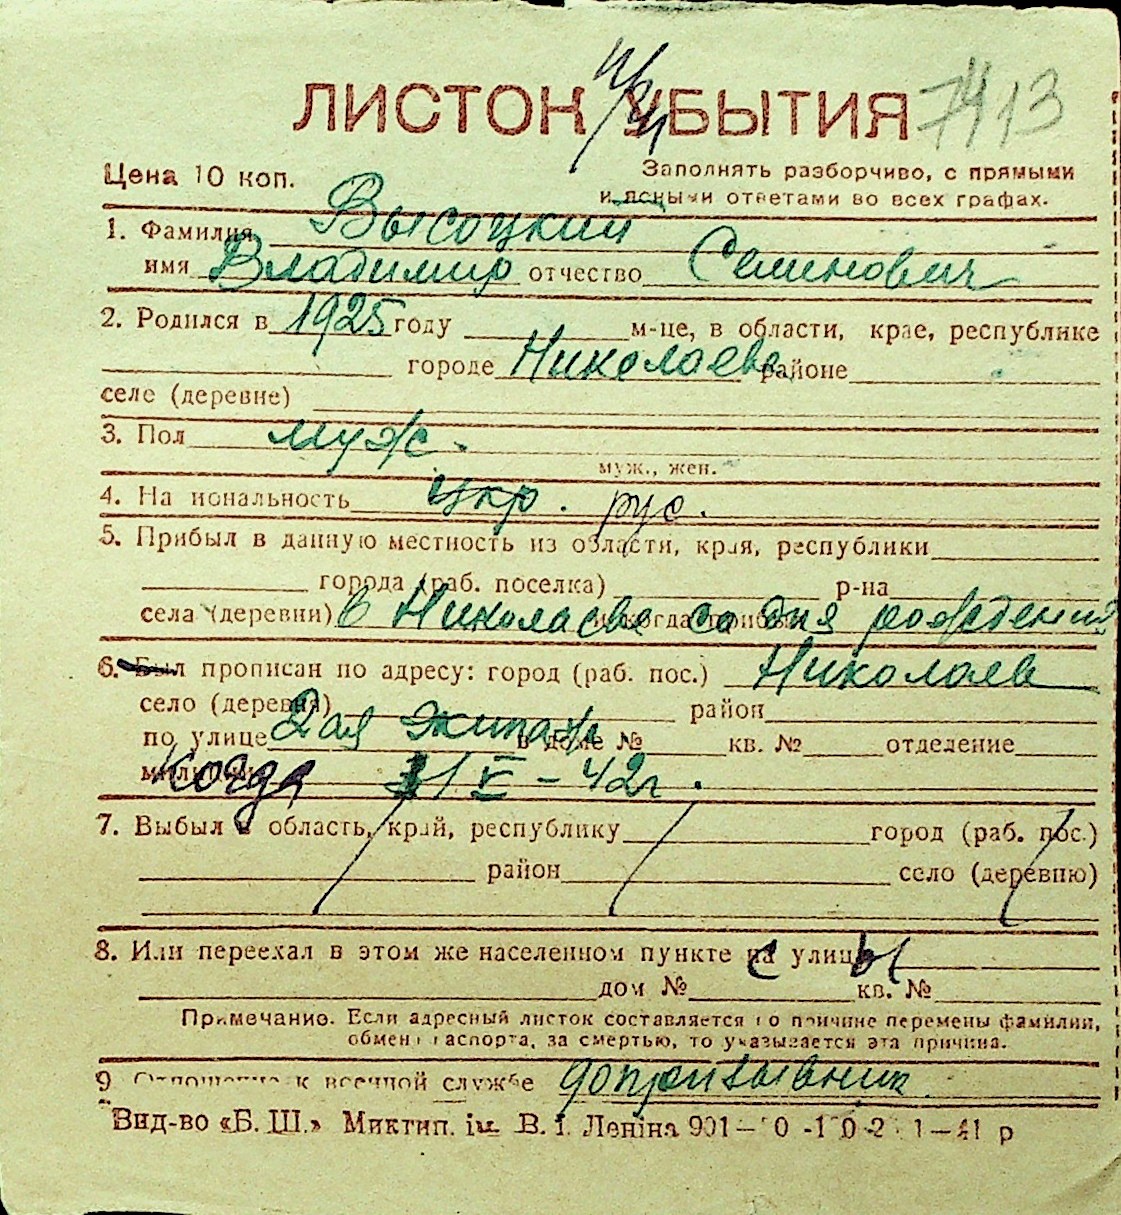 ЛИСТОК УБЫТИЯ 7413
Цена 10 коп. Заполнять разборчиво, с прямыми
и ясными ответами во всех графах.
1. Фамилия Высоцкий
имя Владимир отчество Семенович
2. Родился в 1925 году м-це, в области, крае, республике
городе Николаеве районе
селе (деревне)
3. Пол муж.
муж., жен.
4. Национальность укр. рус.
5. Прибыл в данную местность из области, края, республики
города (раб. поселка) р-на
села (деревни) в Николаеве со дня рождения
6. Был прописан по адресу: город (раб. пос.) Николаев
село (деревня) район
по улице 2ая Экипаж. в доме № кв. № отделение
милиции когда V – 42г.
7. Выбыл в область, край, республику город (раб. пос.)
район село (деревню)
8. Или переехал в этом же населенном пункте с улицы
дом № кв. №
Примечание. Если адресный листок составляется по причине перемены фамилии,
обмена паспорта, за смертью, то указывается эта причина.
9 Отношение к военной службе допризывник
Вид-во «Б. Ш.» Миктип. ім. В. І. Леніна